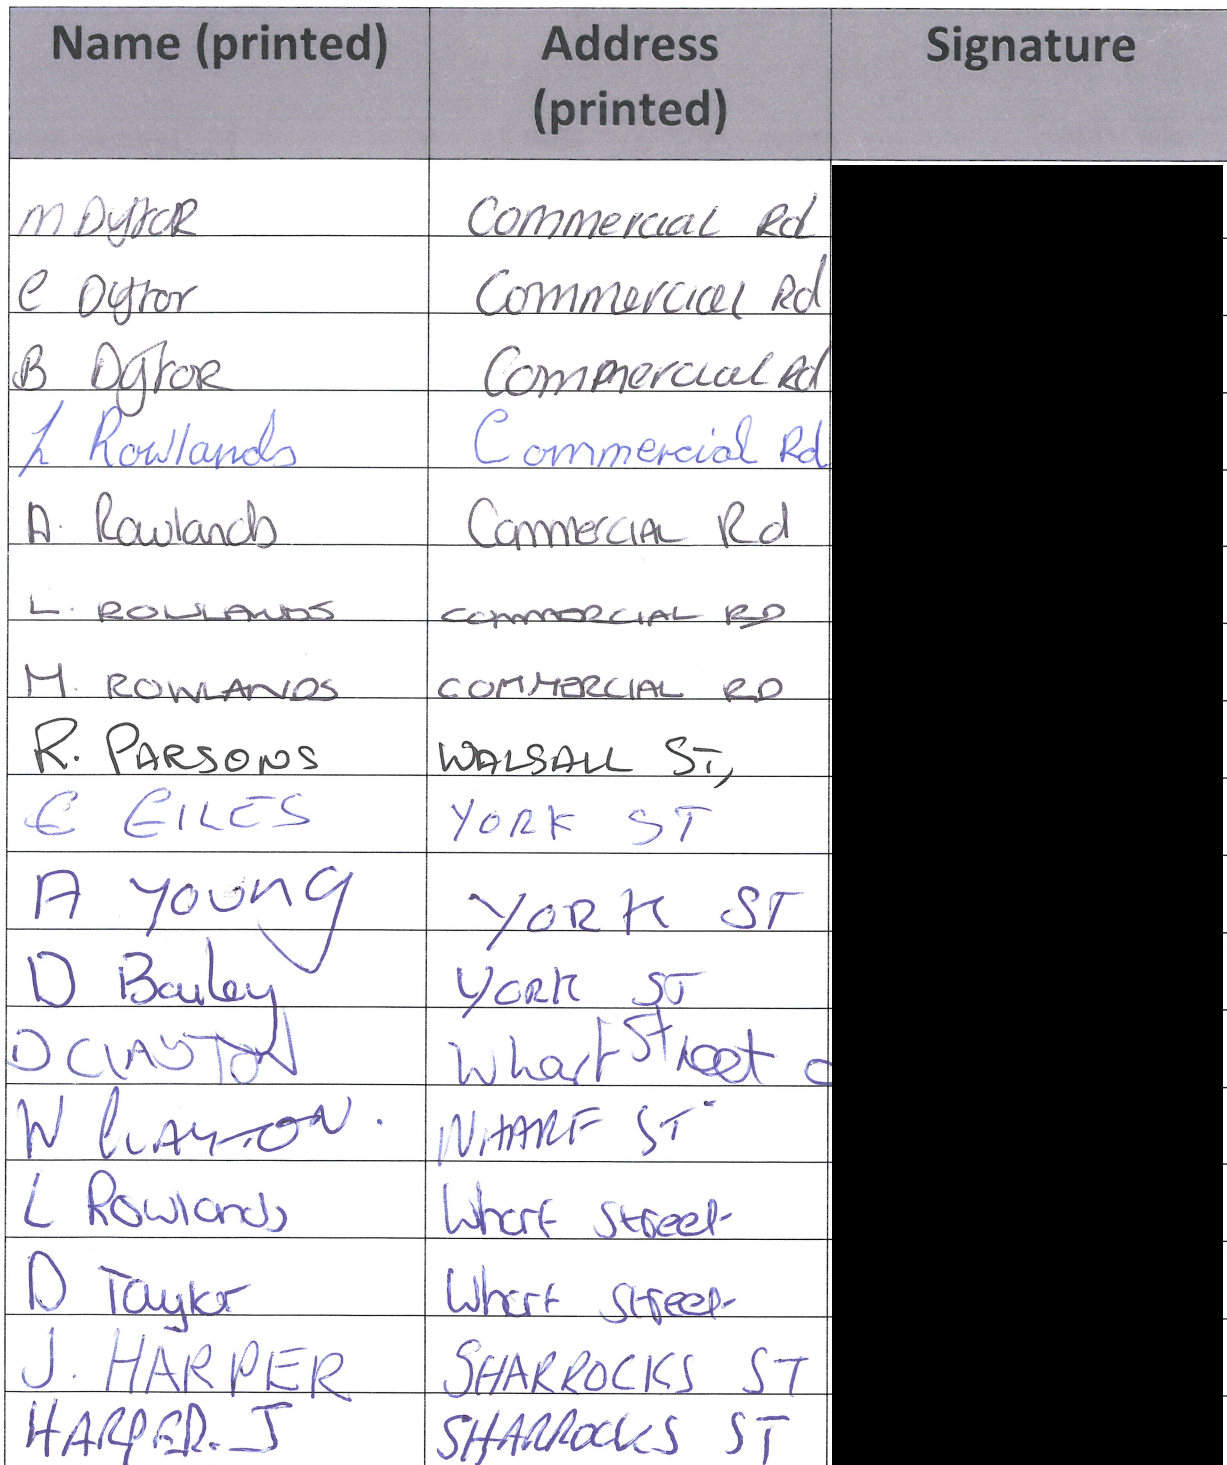 Name (printed) Address (printed) Signature
M Dytor Commercial Rd
C Dytor Commercial Rd
B Dytor Commercial Rd
L Rowlands Commercial Rd
A. Rowlands Commercial Rd
L. ROWLANDS COMMERCIAL RD
M. ROWLANDS COMMERCIAL RD
R. PARSONS WALSALL ST,
E EILES YORK ST
A YOUNG YORK ST
D Bailey YORK ST
D CLAYTON Wharf Street
W CLAYTON. WHARF ST
L Rowlands Wharf Street
D Taylor Wharf Street
J. HARPER SHARROCKS ST
HARPER. J SHARROCKS ST